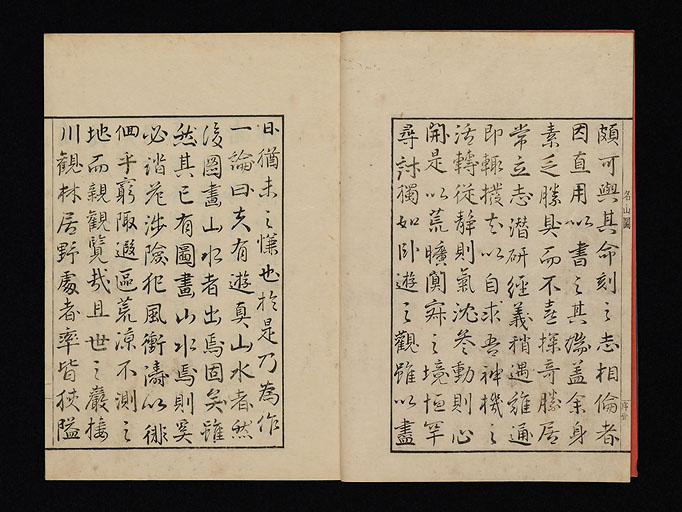 頗可與其命刻之志相倫者
因直用以書之其端蓋余身
素乏勝具而不喜探奇勝居
常立志潛研經義稍遇難通
即輙撥
以自求吾神機之
活轉從靜則氣沈
動則心
開是以荒曠
寂之境恒罕
尋討獨如卧遊之觀雖以晝
日猶未之慊也於是乃為作
一論曰夫有遊真山水者然
後圖畫山水者出焉固矣雖
然其已有圖畫山水焉則奚
必
涉險犯風衝濤以徘
徊乎窮陬遐區荒涼不測之
地而親觀覽哉且世之巖棲
川觀林居野處者率皆狹隘
名山圖